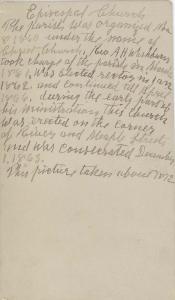 Episcopal Church
The Parish was organized
8 1860 under the name of
Christ Church, Rev. A H Washburn
took charge of the parish in March
1861, was elected rector in Jan
1862 and continued till April
1866. during the early part of
his ministration this church
was erected on the corner
of River and Maple Streets
and was consecrated December
1, 1863.
This picture taken about 1872